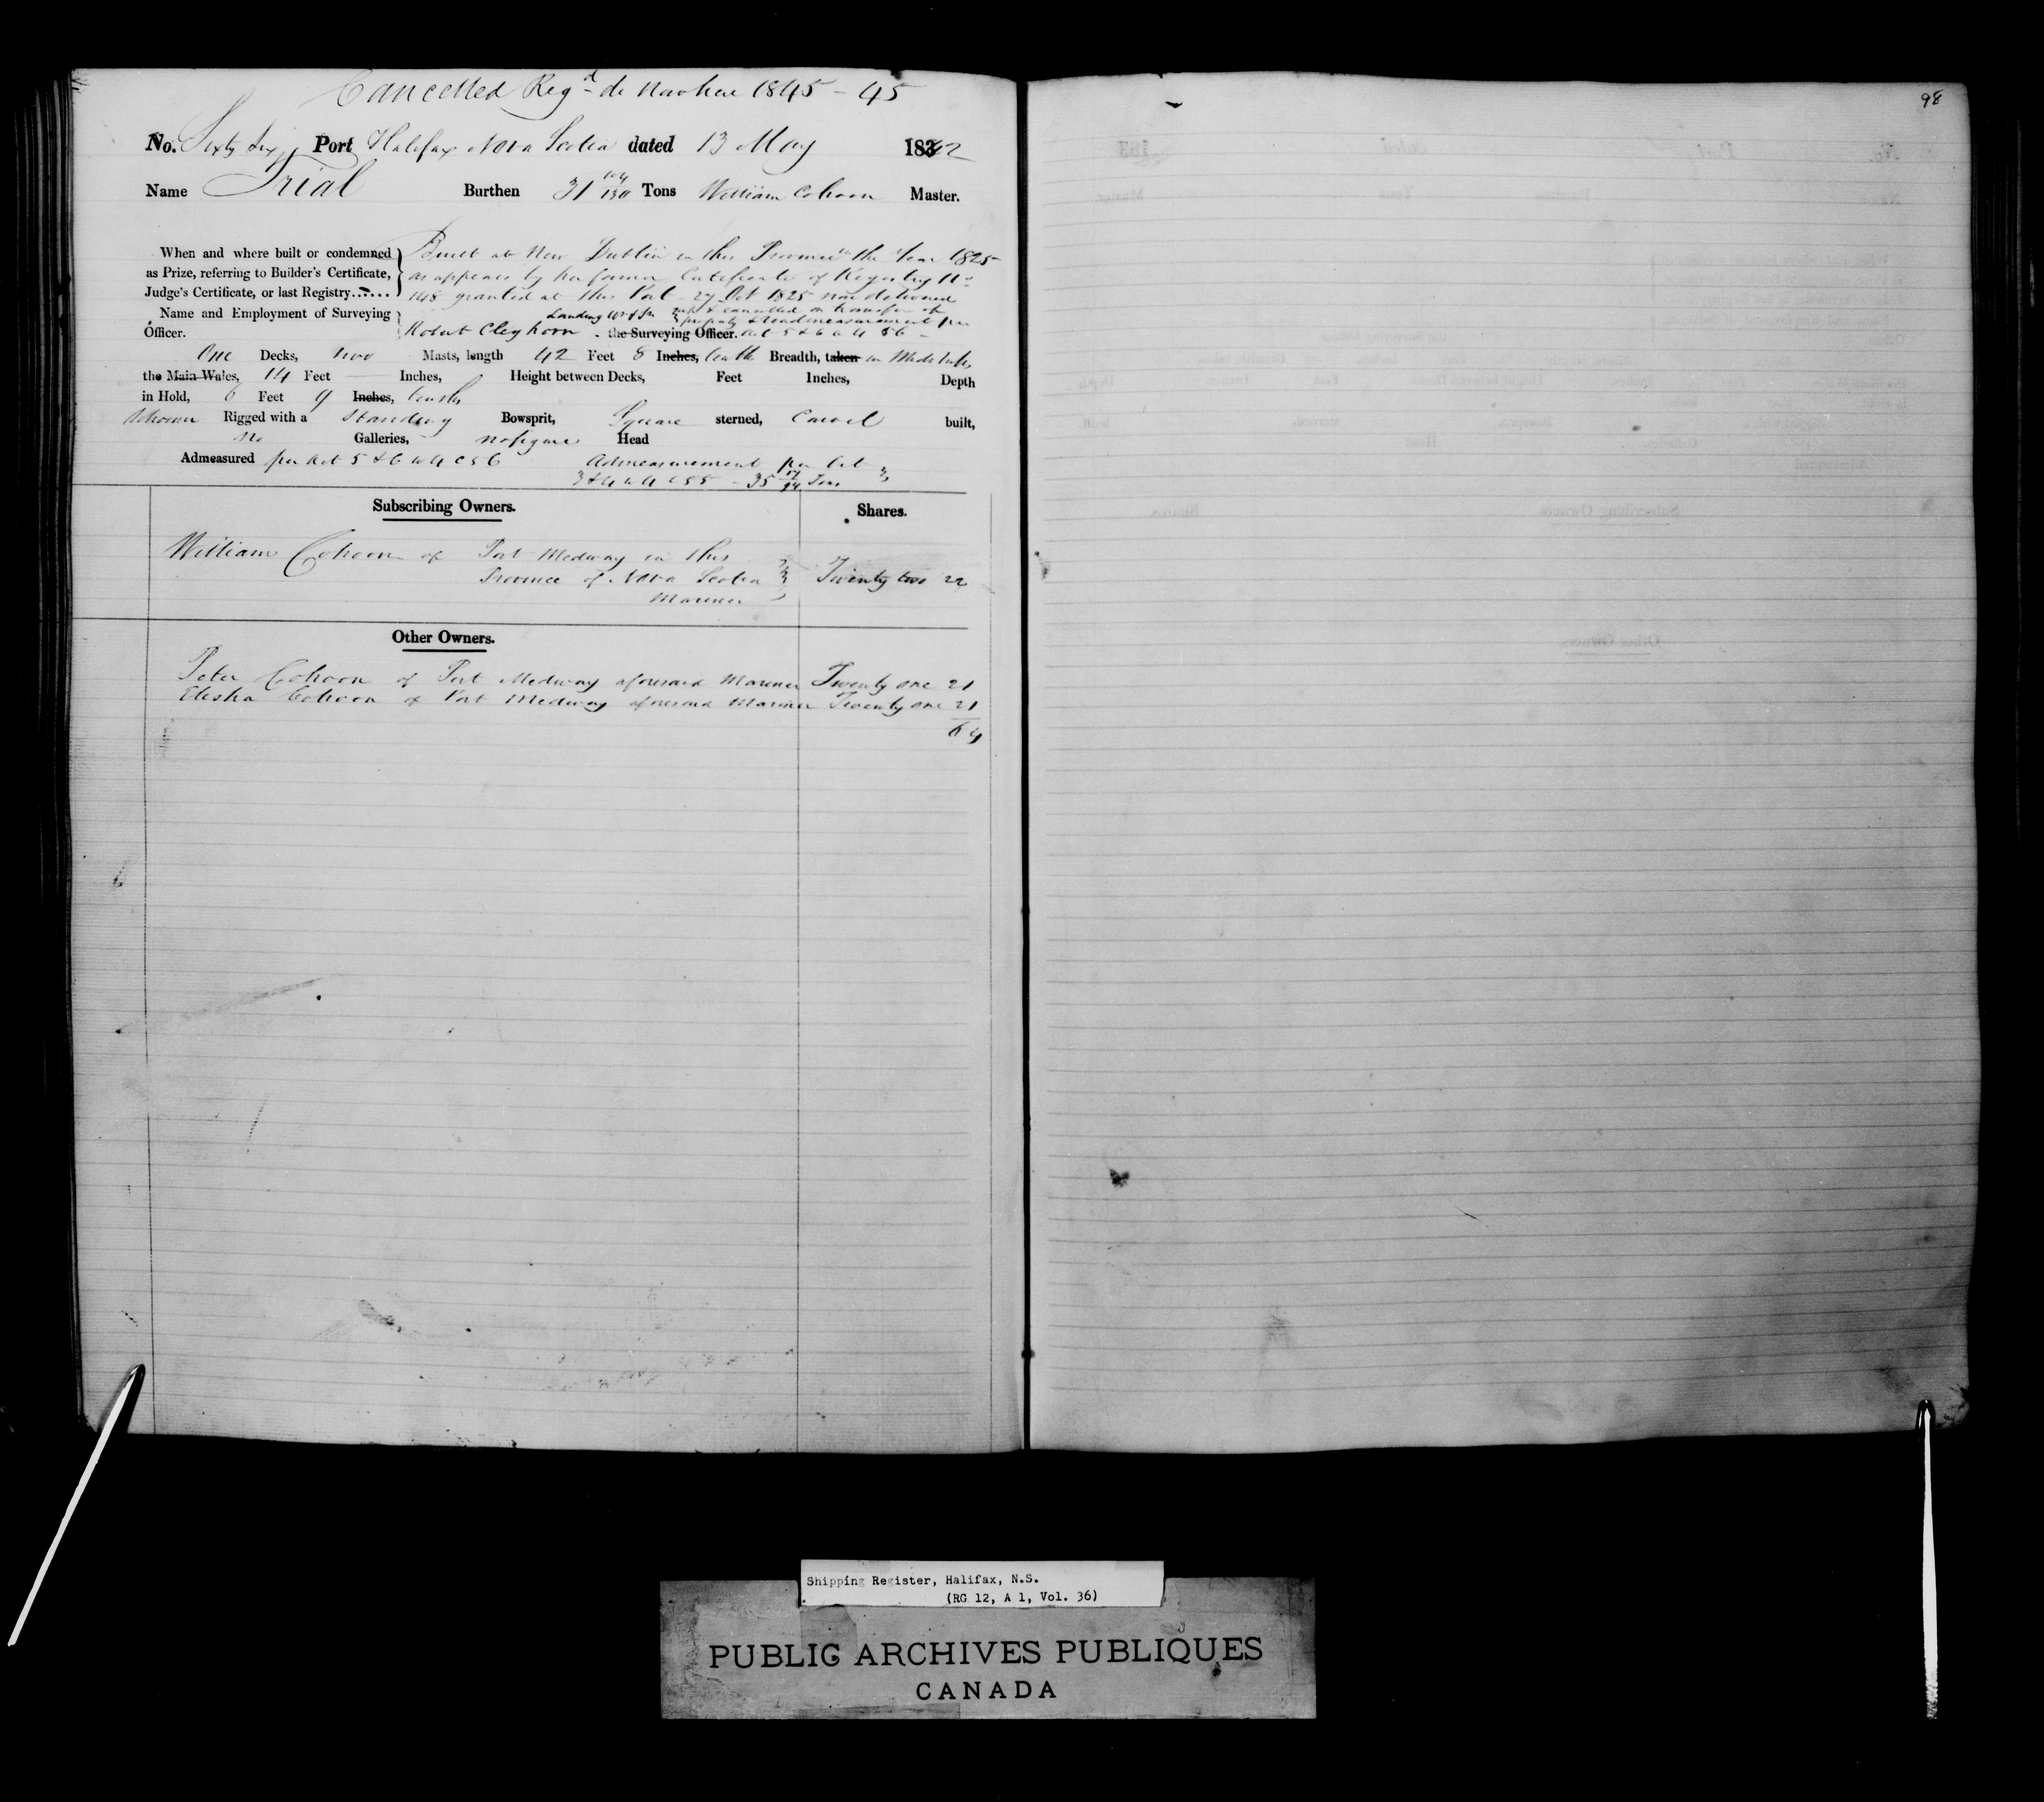 Cancelled Regd de Novo here 1845 - 45
98
No. Sixty Six Port Halifax Nova Scotia dated 13 May 1842
Name Trial Burthen 31 104/130 Tons William Cohoon Master.
When and where built or condemned Built at New Dublin in this Province in the Year 1825
as Prize, referring to Builder's Certificate, as appears by her former Certificate of Registry No
Judge's Certificate, or last Registry...... 148 granted at this Port 27 Oct 1825 now delivered
Name and Employment of Surveying Landing up & cancelled on transfer of
property & readmeasurement per
Officer. Robert Cleghorn the Surveying Officer. Act 5 & 6 W 4 56
One Decks, two Masts, length 42 Feet 8 Inches, tenths Breadth, taken in Midships,
the Main Wales, 14 Feet Inches, Height between Decks, Feet Inches, Depth
in Hold, 6 Feet 9 Inches, tenths
Schooner Rigged with a Standing Bowsprit, Square sterned, Carvel built,
No Galleries, no figure Head
Admeasured per Act 5 & 6 W 4 C 56 Admeasurement per Act
3 & 4 W 4 C 55 - 35 Tons
Subscribing Owners. Shares.
William Cohoon of Port Medway in this
Province of Nova Scotia Twenty two 22
Mariner
Other Owners.
Peter Cohoon of Port Medway aforesaid Mariner Twenty one 21
Elisha Cohoon of Port Medway aforesaid Mariner Twenty one 21
64
Shipping Register, Halifax, N.S.
(RG 12, A 1, Vol. 36)
PUBLIC ARCHIVES PUBLIQUES
CANADA